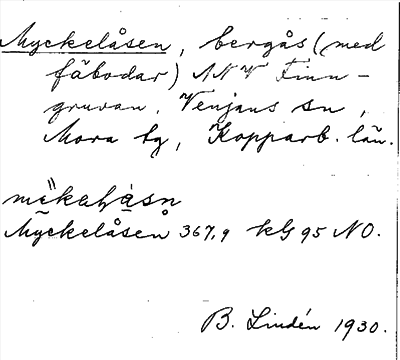 Myckelåsen, bergås (med
fäbodar) NNV Finn-
gruvan, Venjans sn,
Mora tg, Kopparb. län.
Myckelåsen 367,9 kbl 95 NO.
B. Lindén 1930.